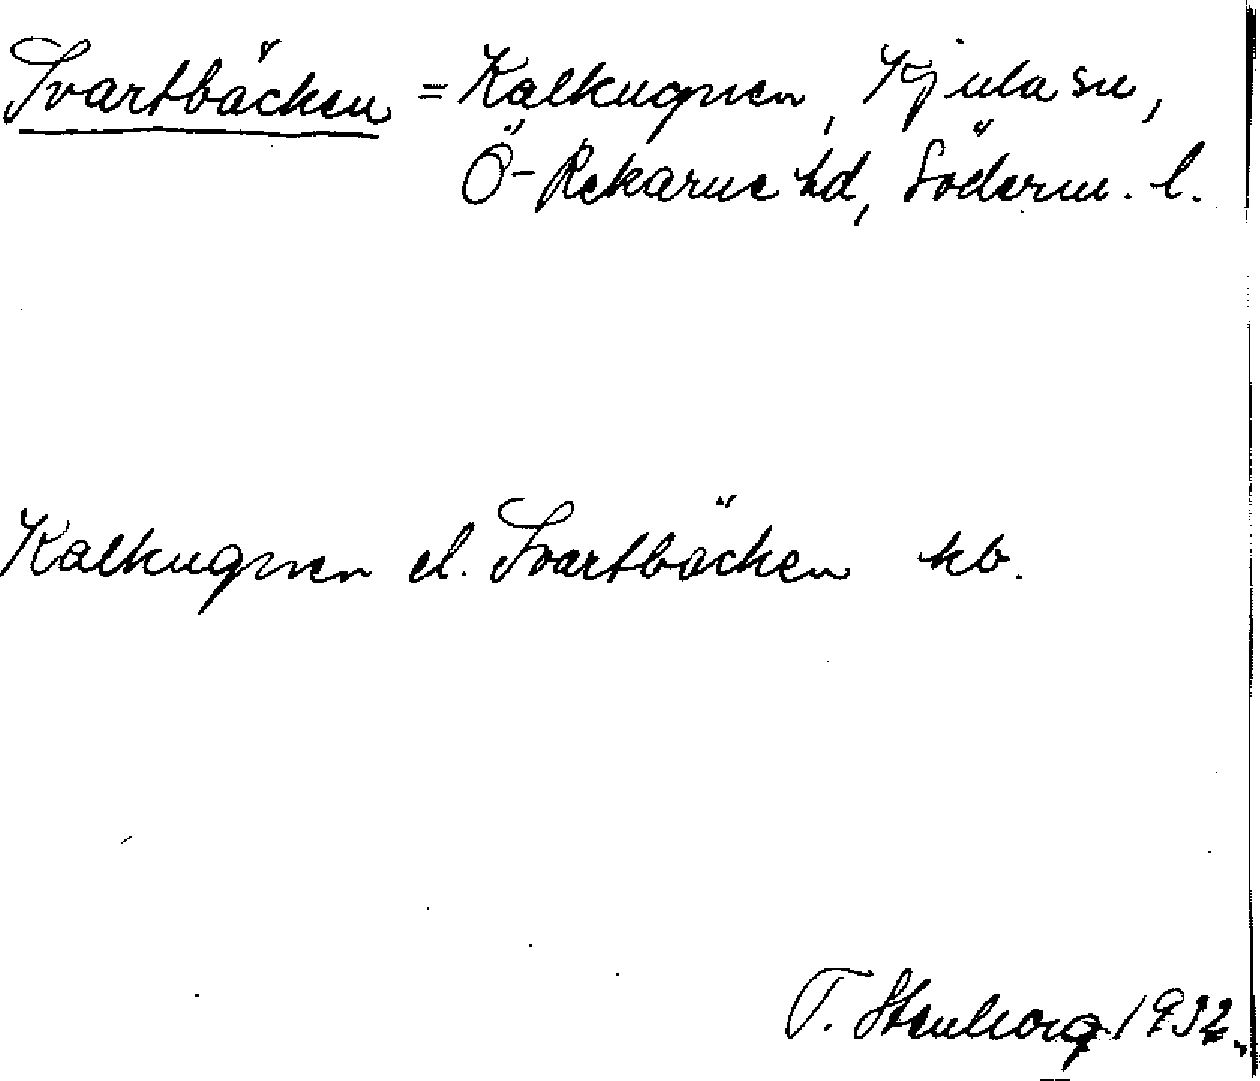 Svartbäcken = Kalkugnen, Kjula sn,
Ö-Rekarne hd, Söderm. l.
Kalkugnen el. Svartbäcken kb.
T. Stenborg 1932.